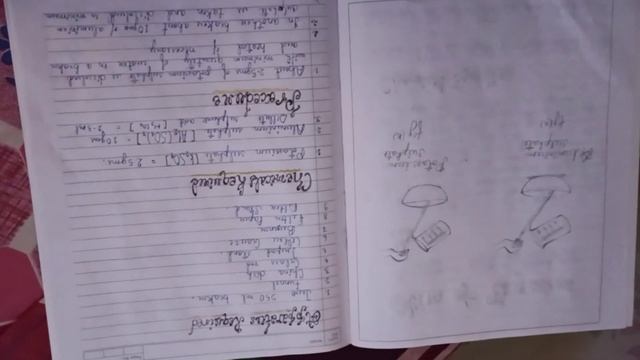 Apparatus Required
1 Two 250 ml beaker.
2 funnel
3 China dish
4 Glass rod
5 Tripod stand
6 Wire Gauze
7 Burner
8 Filter Paper
9 Filter Stand
Chemicals Required
1 Potassium sulphate [K2SO4] = 2.5gms.
2 Aluminium sulphate [Al2(SO4)3] = 10gm
3 Dilute sulphuric acid [H2SO4] = 2-3ml
Procedures
1 About 2.5gms of potassium sulphate is dissolved
with minimum quantity of water in a beaker
and heated if necessary
2. In another beaker about 10gms of aluminium
sulphate is taken and dissolved in minimum
Potassium
sulphate
Aluminium
sulphate